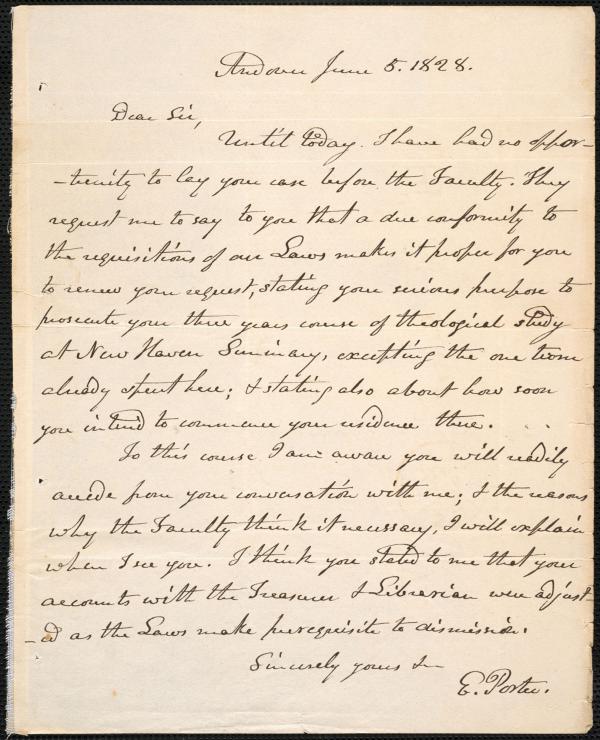 Andover June 5. 1828.
Dear Sir,
Until today. I have had no oppor-
-tunity to lay your case before the Faculty. They
request me to say to you that a due conformity to
the requisitions of our Laws makes it proper for you
to renew your request, stating your serious purpose to
prosecute your three years course of theological study
at New Haven Seminary, excepting the one term
already spent here; & stating also about how soon
you intend to commence your residence there.
To this course I am aware you will readily
accede from your conversation with me; & the reasons
why the Faculty think it necessary, I will explain
when I see you. I think you stated to me that your
accounts with the Treasurer & Librarian were adjust-
-ed as the Laws make prerequisite to dismission.
Sincerely yours &c
E. Porter.